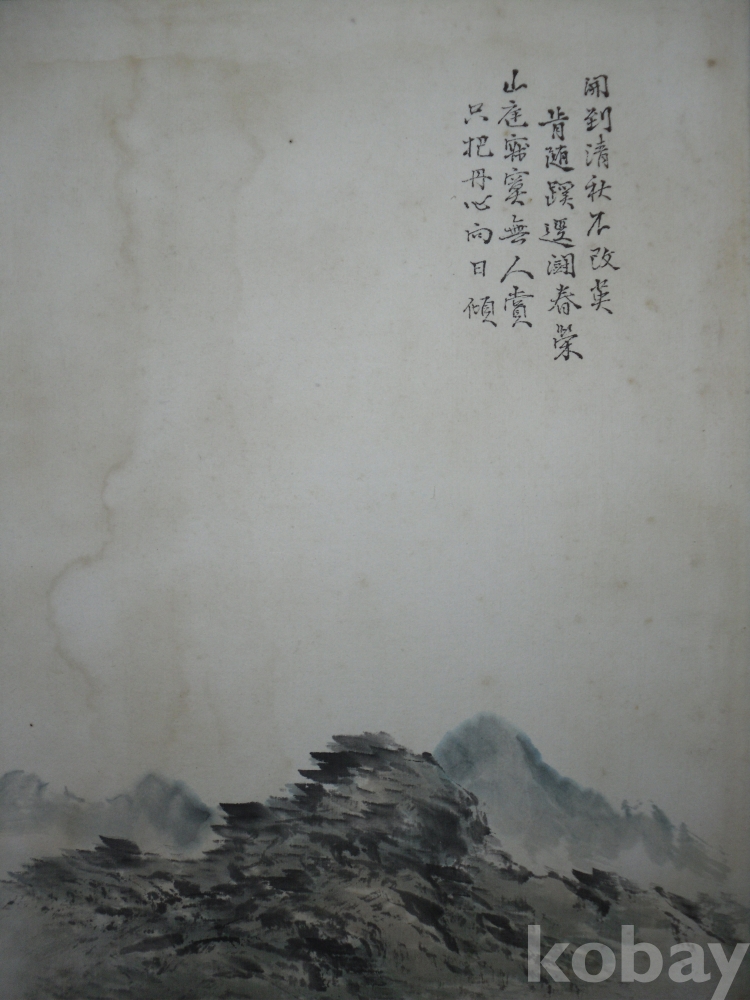 開到淸秋不改英
肯隨蹊逕鬪春榮
山庭寂寞無人賞
只把丹心向日傾
kobay